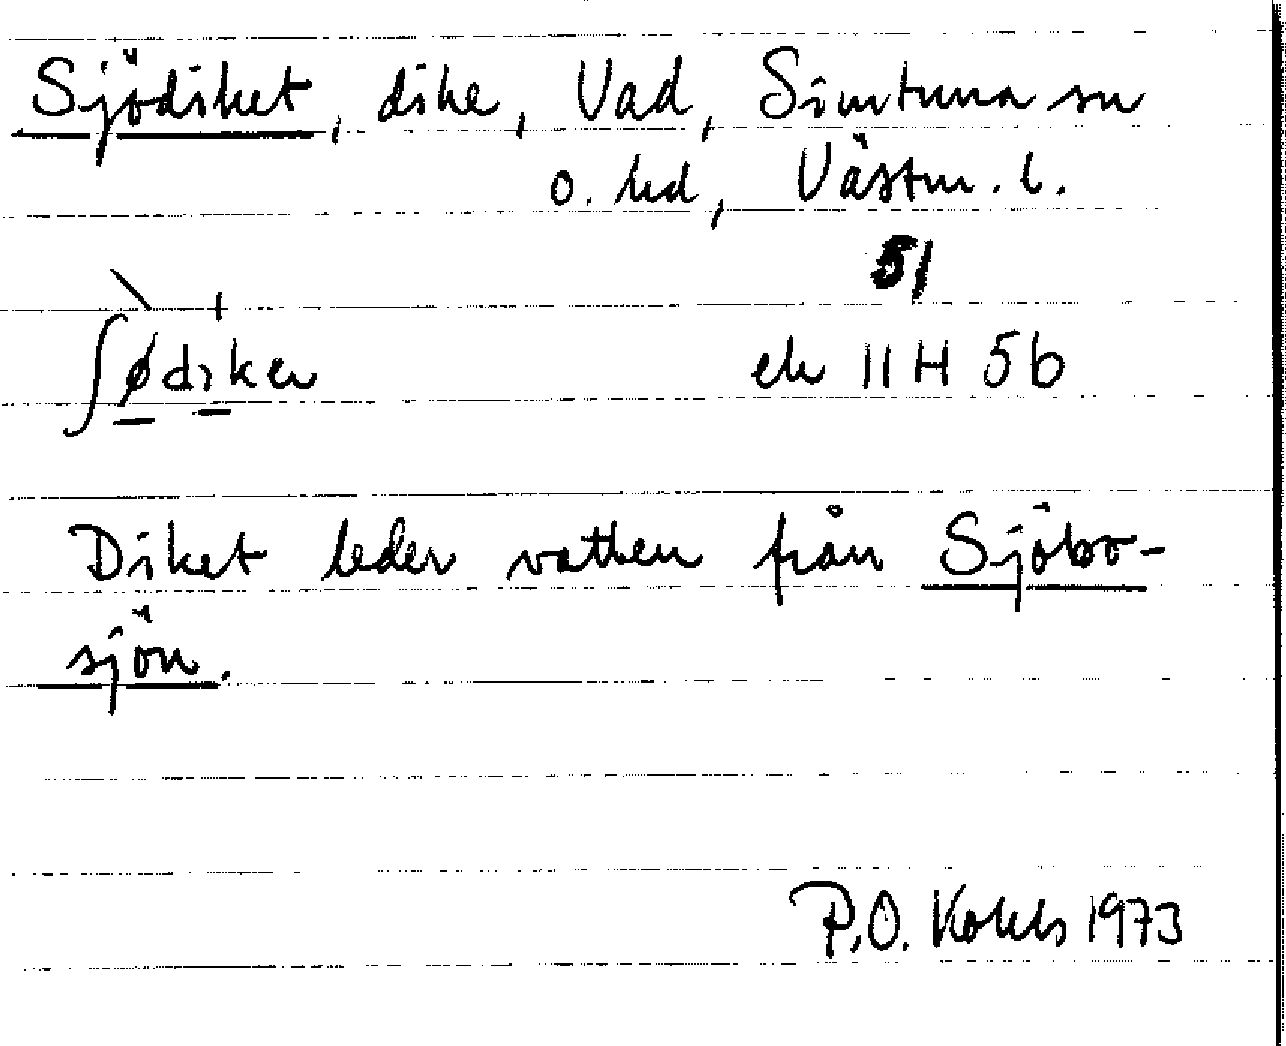 Sjödiket, dike, Vad, Simtuna sn
o. hd, Västm. l.
51
ʃødıker ek 11 H 5b
Diket leder vatten från Sjöbo-
sjön.
P.O. 1973